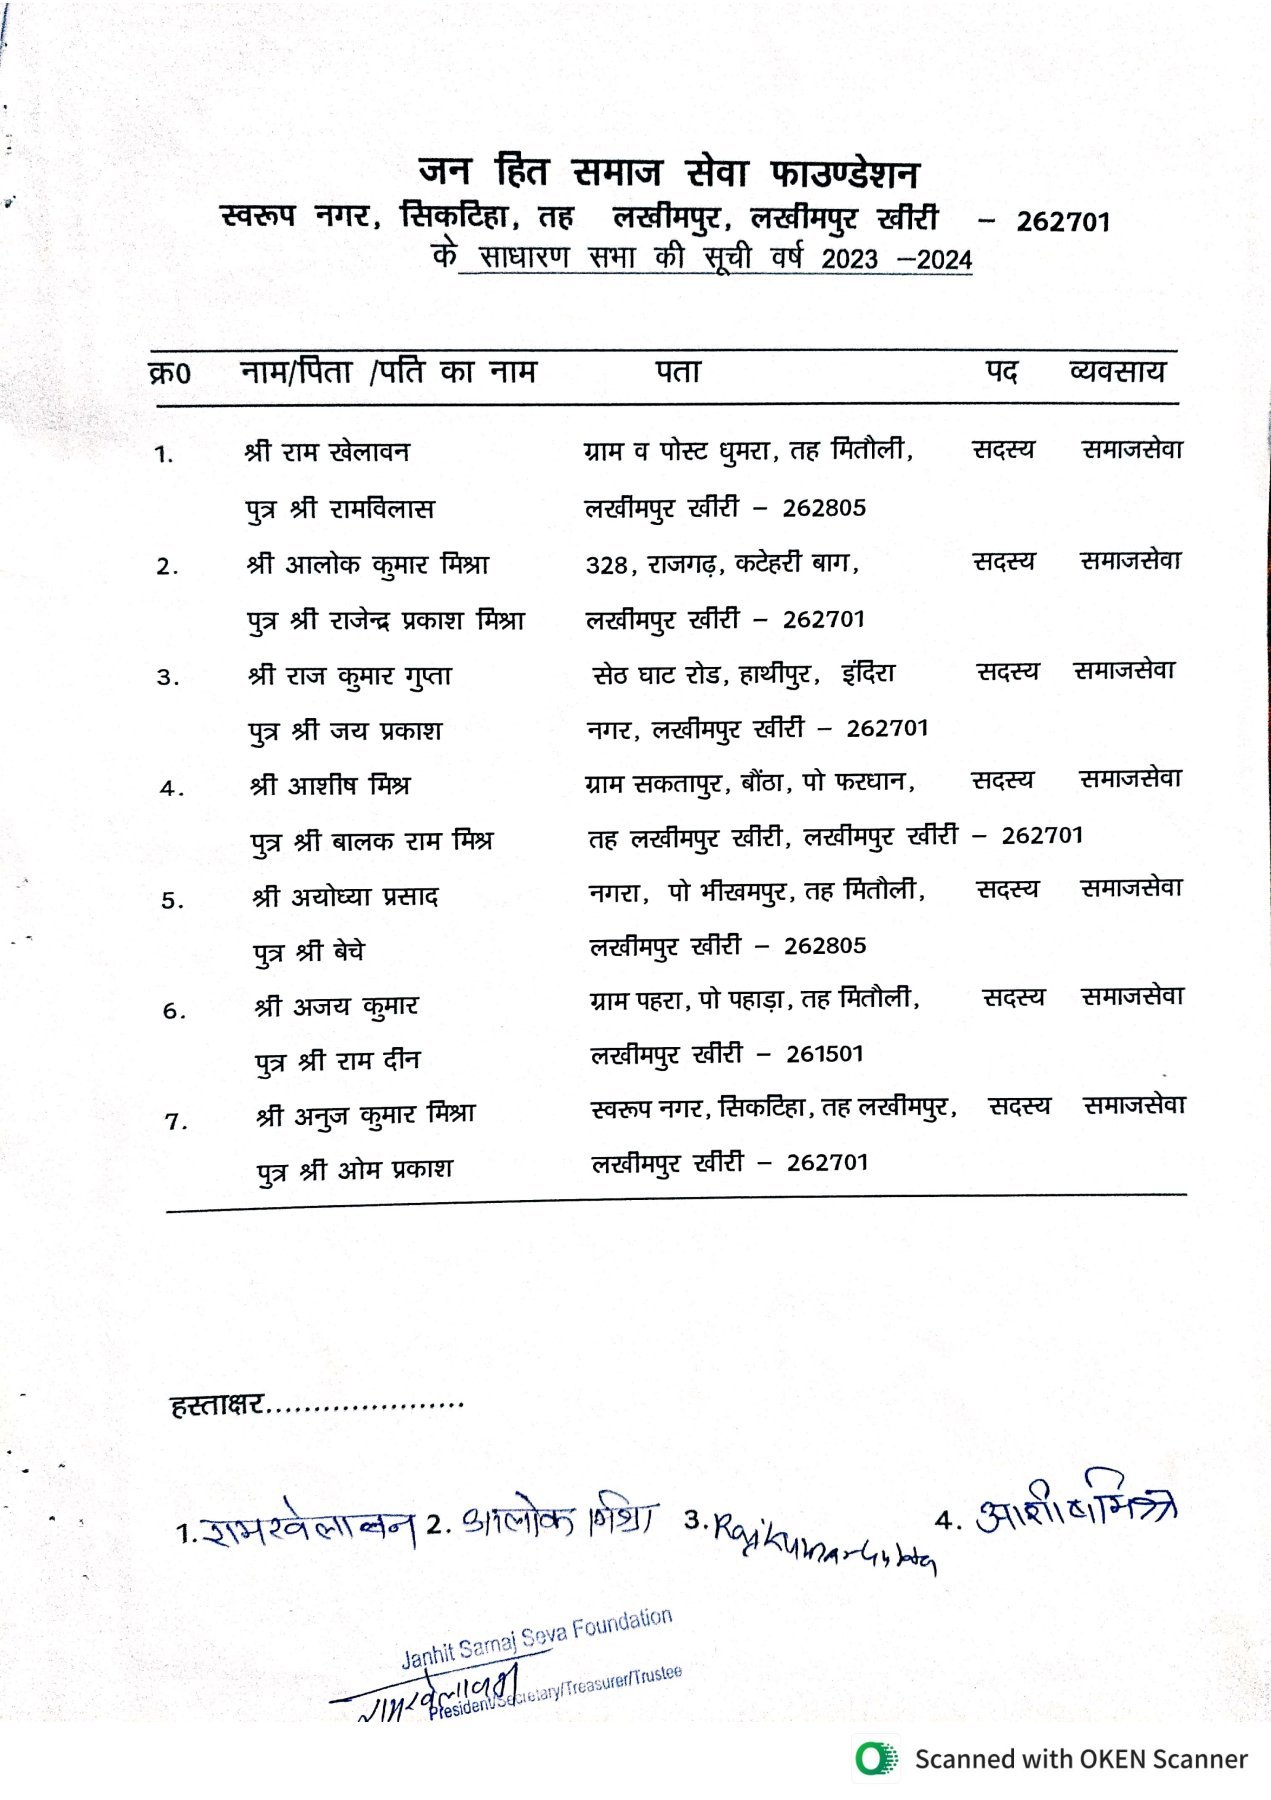 जन हित समाज सेवा फाउण्डेशन
स्वरूप नगर, सिकटिहा, तह लखीमपुर, लखीमपुर खीरी – 262701
के साधारण सभा की सूची वर्ष 2023 –2024
क्र0 नाम/पिता /पति का नाम पता पद व्यवसाय
1. श्री राम खेलावन ग्राम व पोस्ट धुमरा, तह मितौली, सदस्य समाजसेवा
पुत्र श्री रामविलास लखीमपुर खीरी – 262805
2. श्री आलोक कुमार मिश्रा 328, राजगढ़, कटेहरी बाग, सदस्य समाजसेवा
पुत्र श्री राजेन्द्र प्रकाश मिश्रा लखीमपुर खीरी – 262701
3. श्री राज कुमार गुप्ता सेठ घाट रोड, हाथीपुर, इंदिरा सदस्य समाजसेवा
पुत्र श्री जय प्रकाश नगर, लखीमपुर खीरी – 262701
4. श्री आशीष मिश्र ग्राम सकतापुर, बौंठा, पो फरधान, सदस्य समाजसेवा
पुत्र श्री बालक राम मिश्र तह लखीमपुर खीरी, लखीमपुर खीरी – 262701
5. श्री अयोध्या प्रसाद नगरा, पो भीखमपुर, तह मितौली, सदस्य समाजसेवा
पुत्र श्री बेचे लखीमपुर खीरी – 262805
6. श्री अजय कुमार ग्राम पहरा, पो पहाड़ा, तह मितौली, सदस्य समाजसेवा
पुत्र श्री राम दीन लखीमपुर खीरी – 261501
7. श्री अनुज कुमार मिश्रा स्वरूप नगर, सिकटिहा, तह लखीमपुर, सदस्य समाजसेवा
पुत्र श्री ओम प्रकाश लखीमपुर खीरी – 262701
हस्ताक्षर.....................
1. रामखेलावन 2. आलोक मिश्रा 3. Rajkumar Gupta 4. आशीष मिश्र
Janhit Samaj Seva Foundation
रामखेलावन
President/Secretary/Treasurer/Trustee
Scanned with OKEN Scanner